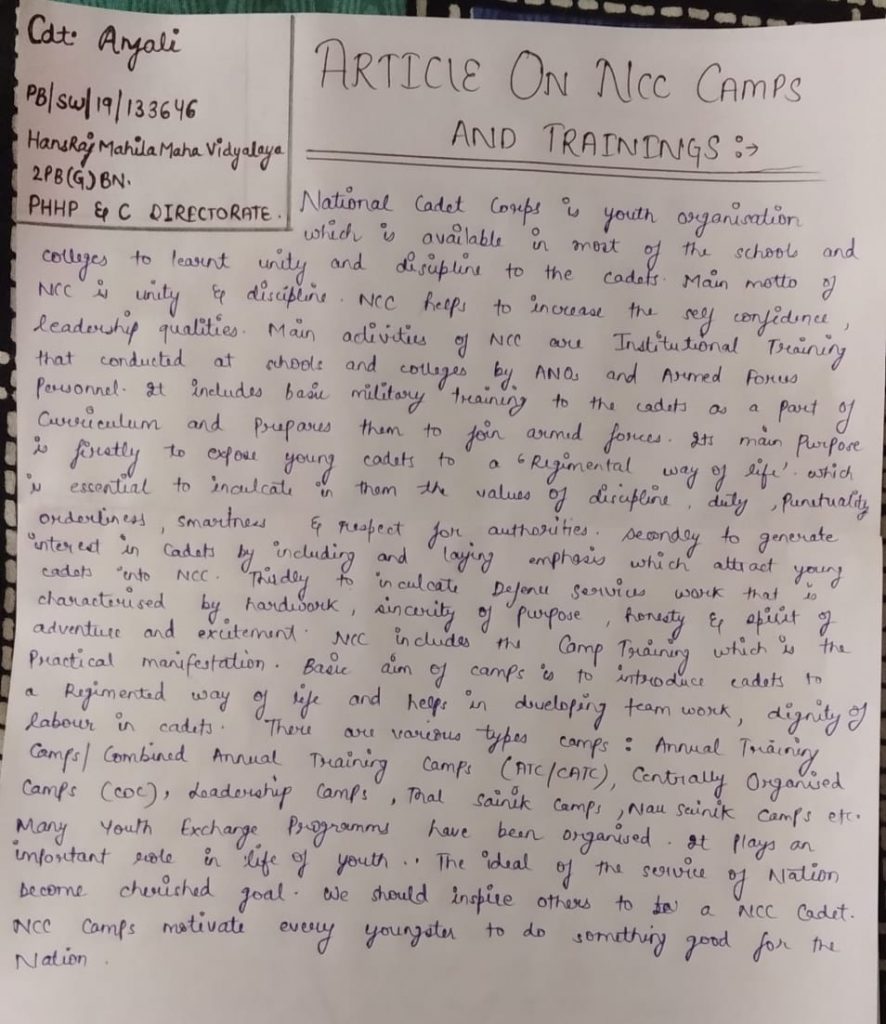 Cdt. Anjali
PB/SW/19/133646
HansRaj Mahila Maha Vidyalaya
2PB(G)BN.
PHHP & C DIRECTORATE.
ARTICLE ON NCC CAMPS
AND TRAININGS :→
National Cadet Corps is youth organisation
which is available in most of the schools and
colleges to learnt unity and disipline to the cadets. Main motto of
NCC is unity & discipline. NCC helps to increase the self confidence,
leadership qualities. Main activities of NCC are Institutional Training
that conducted at schools and colleges by ANOs and Armed Forces
Personnel. It includes basic military training to the cadets as a part of
Curriculum and prepares them to join armed forces. Its main purpose
is firstly to expose young cadets to a 'Regimental way of life'. which
is essential to inculcate in them the values of discipline, duty, Punctuality
orderliness, smartness & respect for authorities. Secondly to generate
interest in Cadets by including and laying emphasis which attract young
cadets into NCC. Thirdly to inculcate Defence services work that is
characterised by hardwork, sincerity of purpose, honesty & spirit of
adventure and excitement. NCC includes the Camp Training which is the
Practical manifestation. Basic aim of camps is to introduce cadets to
a Regimented way of life and helps in developing team work, dignity of
labour in cadets. There are various types camps : Annual Training
Camps/ Combined Annual Training Camps (ATC/CATC), Centrally Organised
Camps (COC), Leadership Camps, Thal Sainik Camps, Nau Sainik Camps etc.
Many Youth Exchange Programms have been organised. It plays an
important role in life of youth.. The ideal of the service of Nation
become cherished goal. We should inspire others to be a NCC Cadet.
NCC Camps motivate every youngster to do something good for the
Nation.